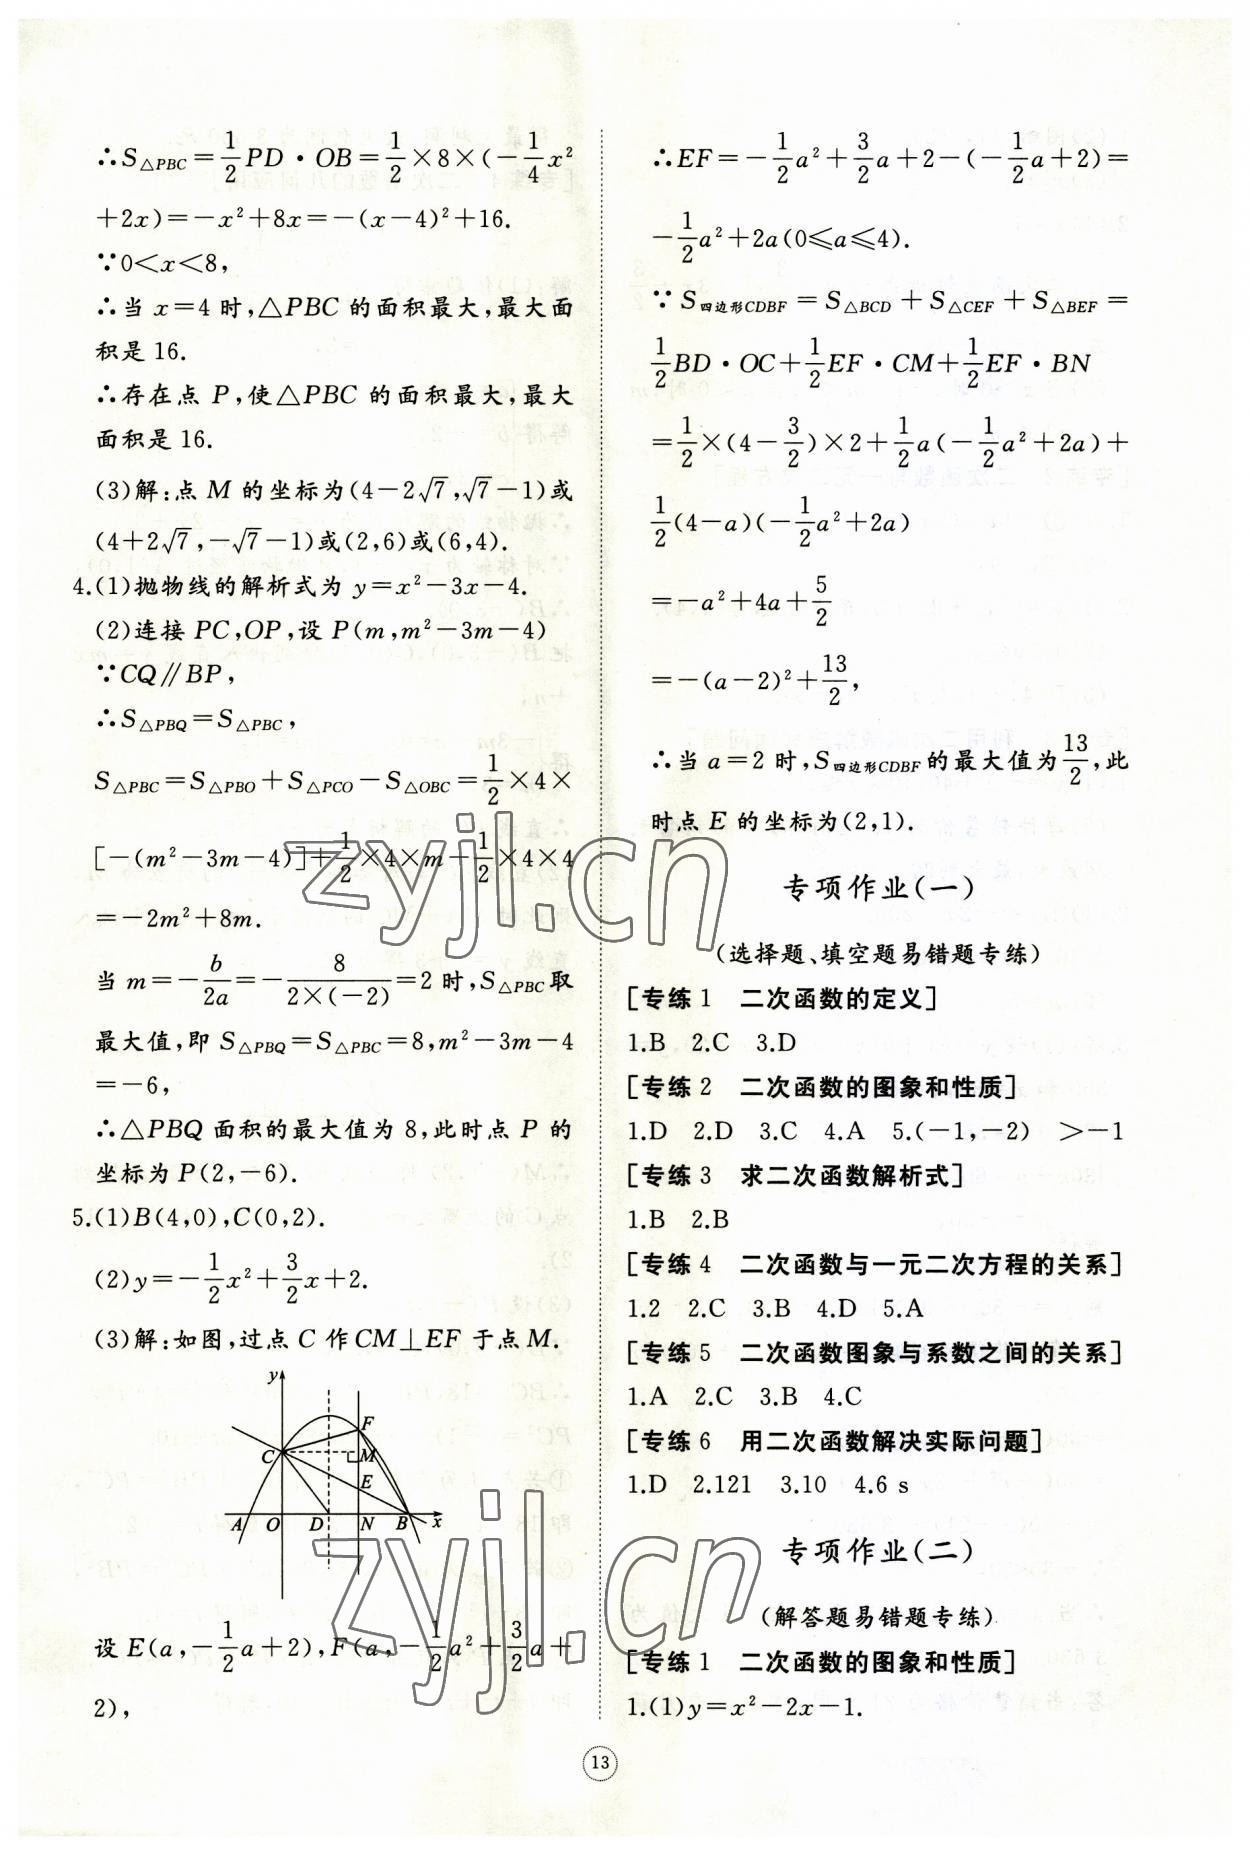 ∴S△PBC=1/2PD·OB=1/2×8×(-1/4x²
+2x)=-x²+8x=-(x-4)²+16.
∵0<x<8,
∴当 x=4 时,△PBC 的面积最大,最大面
积是 16.
∴存在点 P,使△PBC 的面积最大,最大
面积是 16.
(3)解:点 M 的坐标为(4-2√7,√7-1)或
(4+2√7,-√7-1)或(2,6)或(6,4).
4.(1)抛物线的解析式为 y=x²-3x-4.
(2)连接 PC,OP,设 P(m,m²-3m-4)
∵CQ∥BP,
∴S△PBQ=S△PBC,
S△PBC=S△PBO+S△PCO-S△OBC=1/2×4×
[-(m²-3m-4)]+1/2×4×m-1/2×4×4
=-2m²+8m.
当 m=-b/2a=-8/2×(-2)=2 时,S△PBC取
最大值,即 S△PBQ=S△PBC=8,m²-3m-4
=-6,
∴△PBQ 面积的最大值为 8,此时点 P 的
坐标为 P(2,-6).
5.(1)B(4,0),C(0,2).
(2)y=-1/2x²+3/2x+2.
(3)解:如图,过点 C 作 CM⊥EF 于点 M.
y
F
C
M
E
A O D N B x
设 E(a,-1/2a+2),F(a,-1/2a²+3/2a+
2),
∴EF=-1/2a²+3/2a+2-(-1/2a+2)=
-1/2a²+2a(0≤a≤4).
∵S四边形CDBF=S△BCD+S△CEF+S△BEF=
1/2BD·OC+1/2EF·CM+1/2EF·BN
=1/2×(4-3/2)×2+1/2a(-1/2a²+2a)+
1/2(4-a)(-1/2a²+2a)
=-a²+4a+5/2
=-(a-2)²+13/2,
∴当 a=2 时,S四边形CDBF的最大值为13/2,此
时点 E 的坐标为(2,1).
专项作业(一)
(选择题、填空题易错题专练)
[专练1 二次函数的定义]
1.B 2.C 3.D
[专练2 二次函数的图象和性质]
1.D 2.D 3.C 4.A 5.(-1,-2) >-1
[专练3 求二次函数解析式]
1.B 2.B
[专练4 二次函数与一元二次方程的关系]
1.2 2.C 3.B 4.D 5.A
[专练5 二次函数图象与系数之间的关系]
1.A 2.C 3.B 4.C
[专练6 用二次函数解决实际问题]
1.D 2.121 3.10 4.6 s
专项作业(二)
(解答题易错题专练)
[专练1 二次函数的图象和性质]
1.(1)y=x²-2x-1.
13
zyjl.cn
zyjl.cn